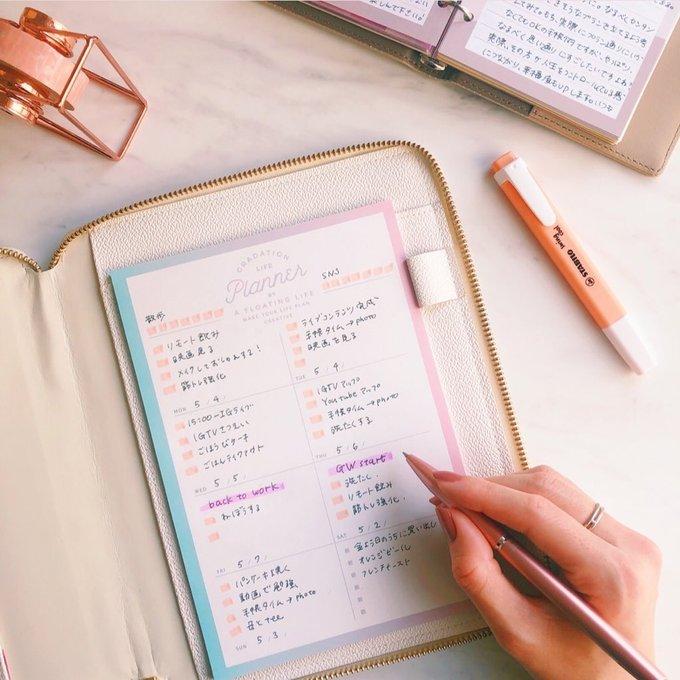 なくてもOKの手帳タイムですが、やっぱり
GRADATION
LIFE
Planner
BY
A FLOATING LIFE
MAKE YOUR LIFE PLAN
CREATIVE
散歩
SNS
リモート飲み
映画見る
メイクしておしゃれする！
筋トレ強化
MON 5/4/
ライブコンテンツ完成
手帳タイム→photo
映画を見る
TUE 5/4/
15:00〜IGライブ
IGTVさつえい
ごほうびケーキ
ごはんテイクアウト
WED 5/5/
IGTVアップ
Youtubeアップ
手帳タイム→photo
洗たくする
THU 5/6/
back to work
ねぼうする
5/7/
GW start
洗たく
リモート飲み
筋トレ強化
SAT 5/2/
パンケーキ焼く
動画で勉強
手帳タイム→photo
母とtea
SUN 5/3/
金よう日のうちに買い出し
オレンジピール
フレンチトースト
STABILO
swing
cool